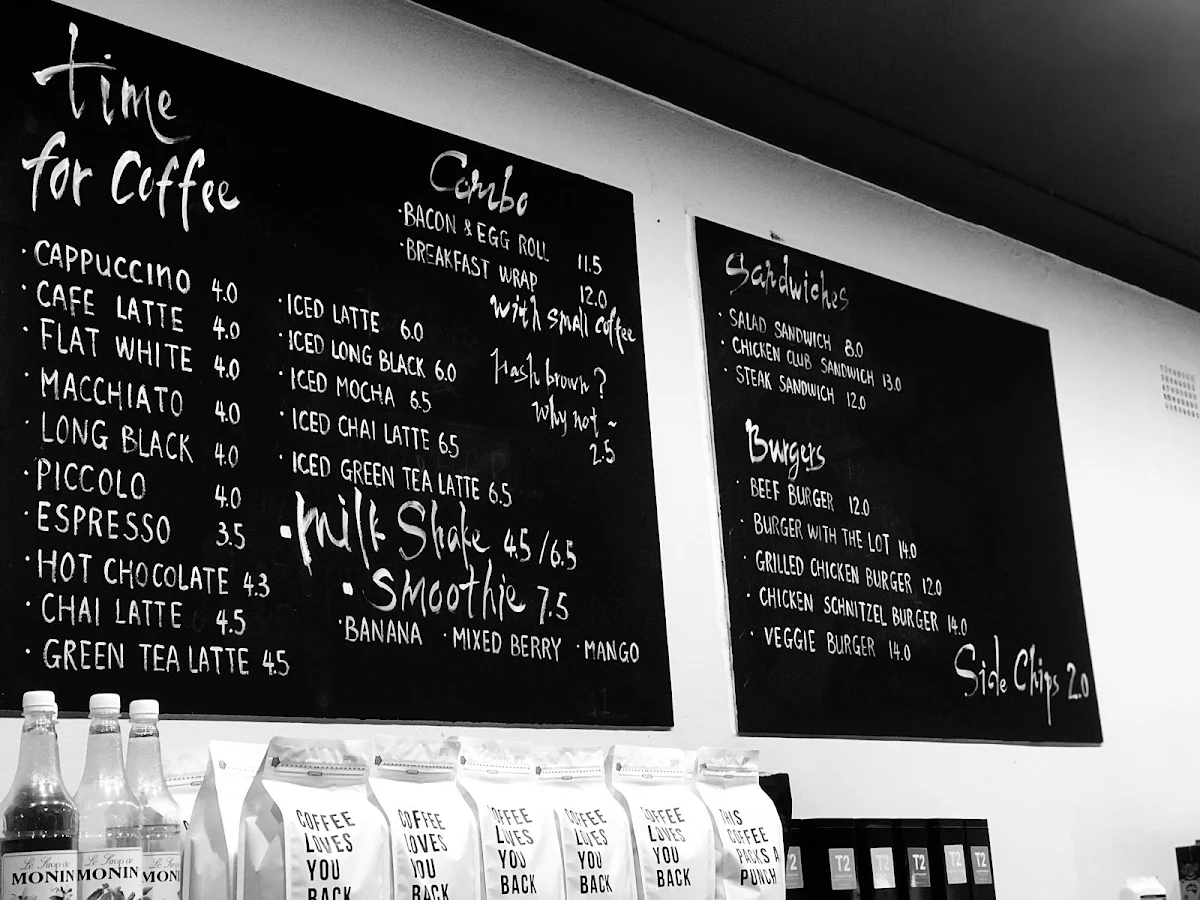 time
for Coffee
· CAPPUCCINO 4.0
· CAFE LATTE 4.0
· FLAT WHITE 4.0
· MACCHIATO 4.0
· LONG BLACK 4.0
· PICCOLO 4.0
· ESPRESSO 3.5
· HOT CHOCOLATE 4.3
· CHAI LATTE 4.5
· GREEN TEA LATTE 4.5
Combo
· BACON & EGG ROLL 11.5
· BREAKFAST WRAP 12.0
with small coffee
Hash brown?
Why not ~
2.5
· ICED LATTE 6.0
· ICED LONG BLACK 6.0
· ICED MOCHA 6.5
· ICED CHAI LATTE 6.5
· ICED GREEN TEA LATTE 6.5
· Milk Shake 4.5 / 6.5
· Smoothie 7.5
· BANANA · MIXED BERRY · MANGO
Sandwiches
· SALAD SANDWICH 8.0
· CHICKEN CLUB SANDWICH 13.0
· STEAK SANDWICH 12.0
Burgers
· BEEF BURGER 12.0
· BURGER WITH THE LOT 14.0
· GRILLED CHICKEN BURGER 12.0
· CHICKEN SCHNITZEL BURGER 14.0
· VEGGIE BURGER 14.0
Side Chips 2.0
Le Sirop de
MONIN
Le Sirop de
MONIN
Le Sirop de
MONI
COFFEE
LOVES
YOU
BACK
COFFEE
LOVES
YOU
BACK
COFFEE
LOVES
YOU
BACK
COFFEE
LOVES
YOU
BACK
COFFEE
LOVES
YOU
BACK
THIS
COFFEE
PACKS A
PUNCH
T2
T2
T2
T2
T2
T2